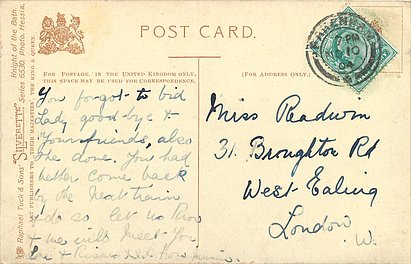 POST CARD.
FOR POSTAGE IN THE UNITED KINGDOM ONLY,
THIS SPACE MAY BE USED FOR CORRESPONDENCE.
(FOR ADDRESS ONLY.)
You forgot to bid
Lady good-bye &
Your friends, also
the done. You had
better come back
by the Next train
& do so let us know
& we will meet you
Miss Readwin
31. Broughton Rd
West Ealing
London
W.
PM
10
Raphael Tuck & Sons' "SILVERETTE"
Knight of the Bath
Series 6530. Photo, Hessia.
ART PUBLISHERS TO THEIR MAJESTIES THE KING & QUEEN.